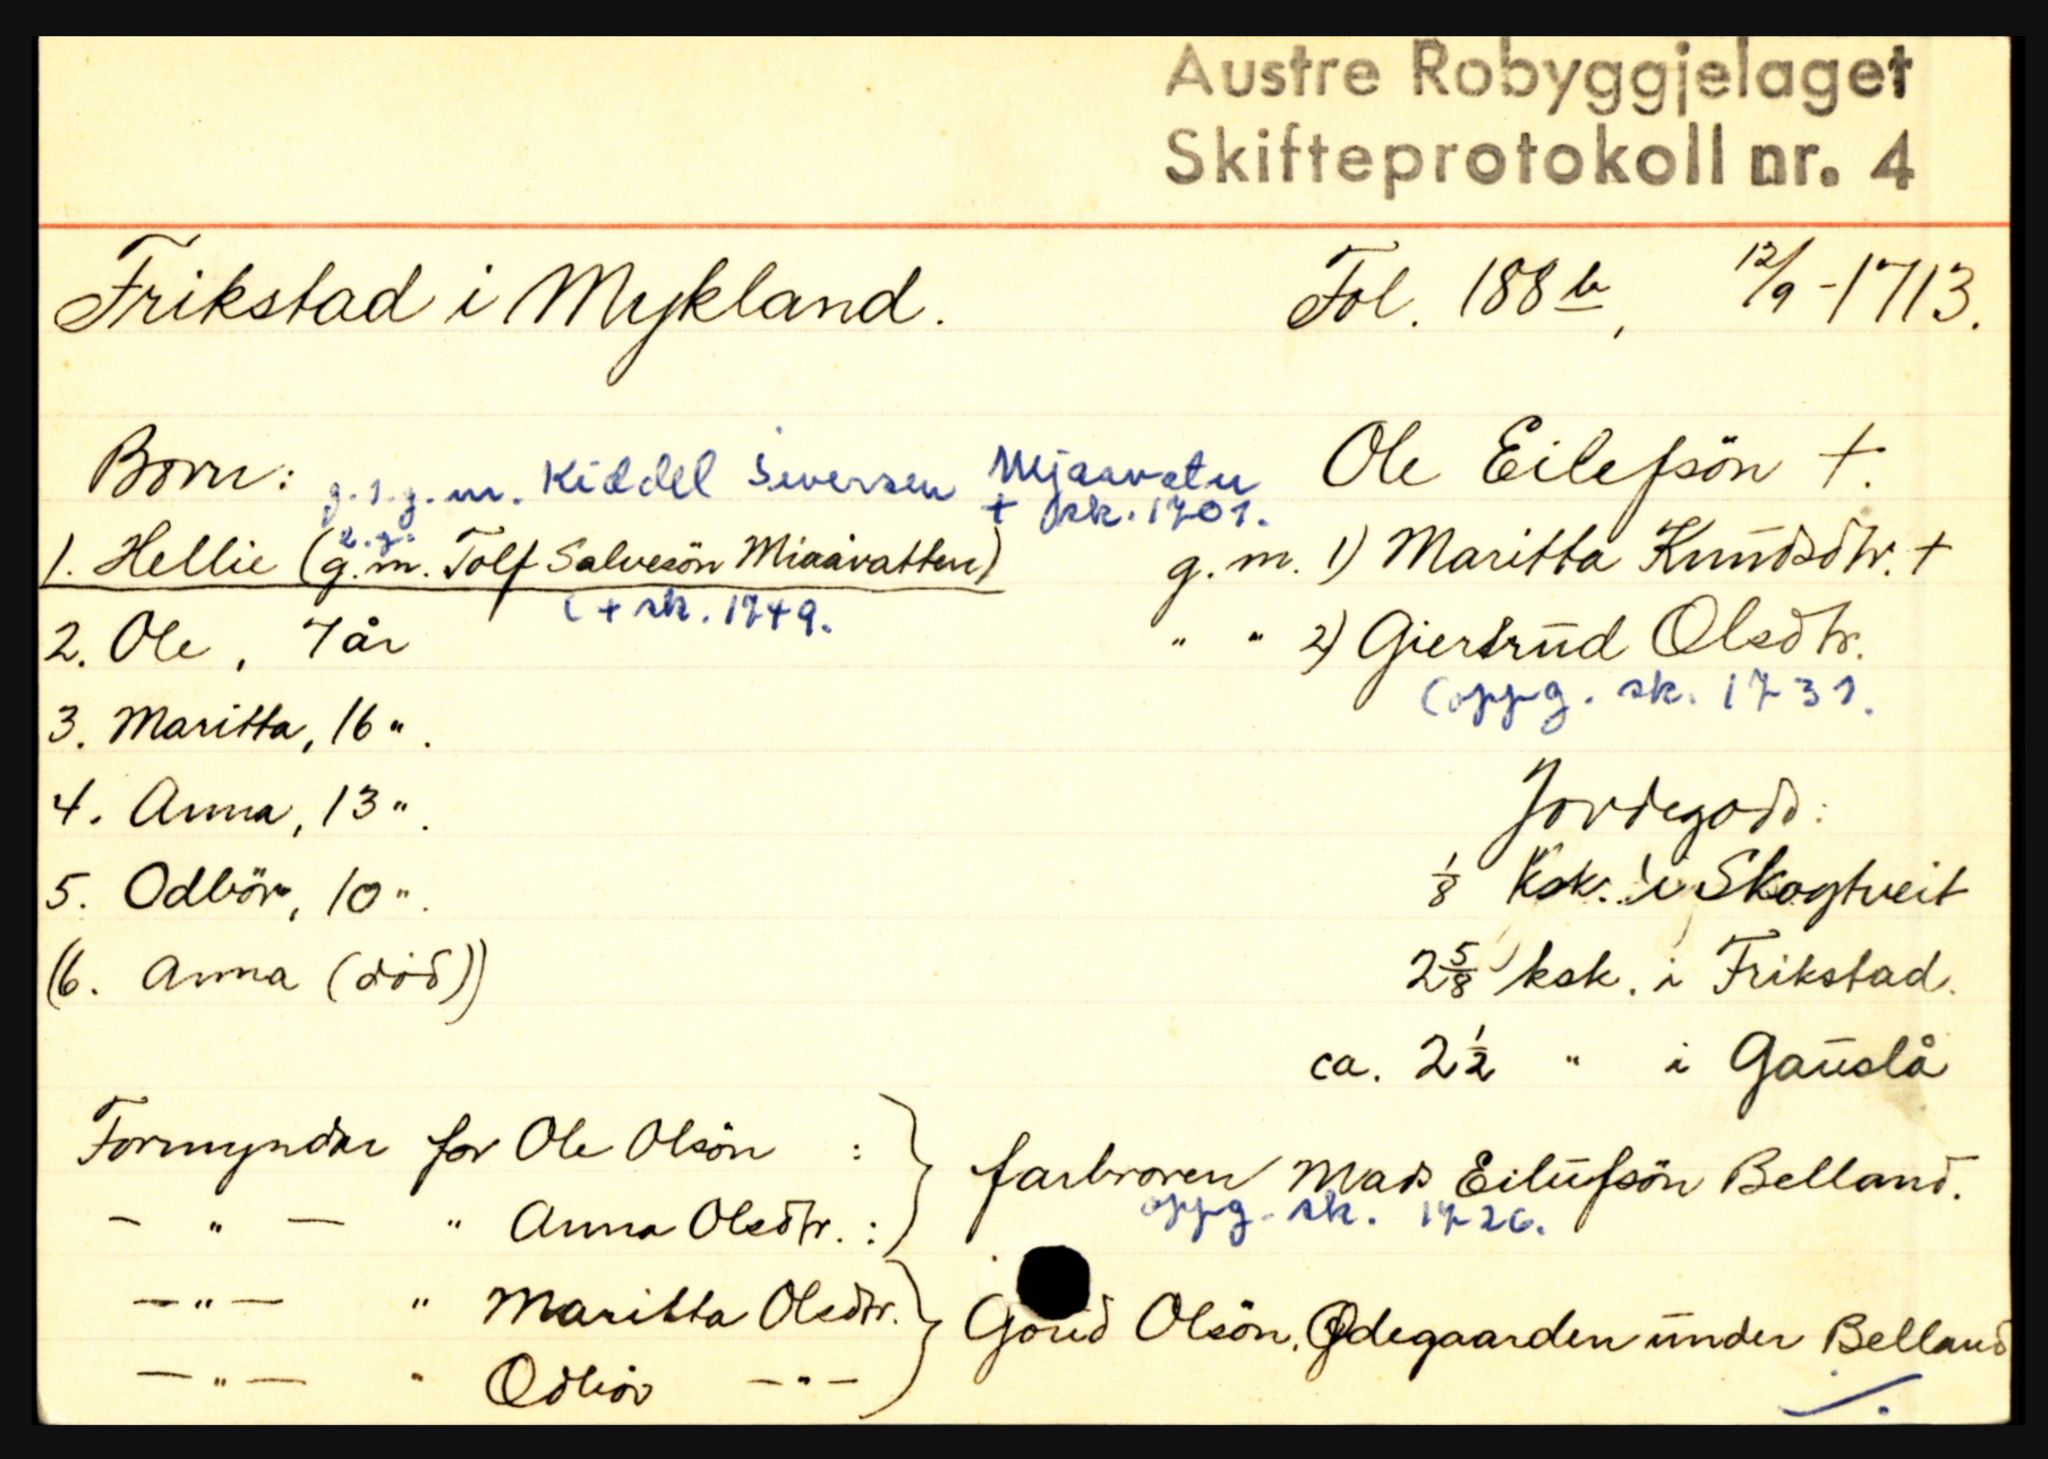 Austre Robyggjelaget
Skifteprotokoll nr. 4
Frikstad i Mykland. Fol. 188 b, 12/9-1713.
Born: g. 1. g. m. Kiddel Siversen Mjaavatn Ole Eilefsön +.
+ sk. 1701.
2. g.
1. Hellie (g.m. Tolf Salvesön Miaavatten) g. m. 1) Maritta Knudsdtr. +
(+ sk. 1749.
2. Ole, 7 år " " 2) Giertrud Olsdtr.
(oppg. sk. 1731.
3. Maritta, 16 ".
4. Anna, 13 ". Jordegods:
5. Odbör, 10 ". 1/8 Ksk. i Skogtveit
(6. Anna (död)) 2 5/8 ksk. i Frikstad.
ca. 2 1/2 " i Gauslå
Formyndar for Ole Olsön : } farbroren Mads Eilufsön Belland.
— " — " Anna Olsdtr. : oppg. sk. 1726.
— " — " Maritta Olsdtr. } Goud Olsön, Ødegaarden under Belland
— " — " Odbör — " —